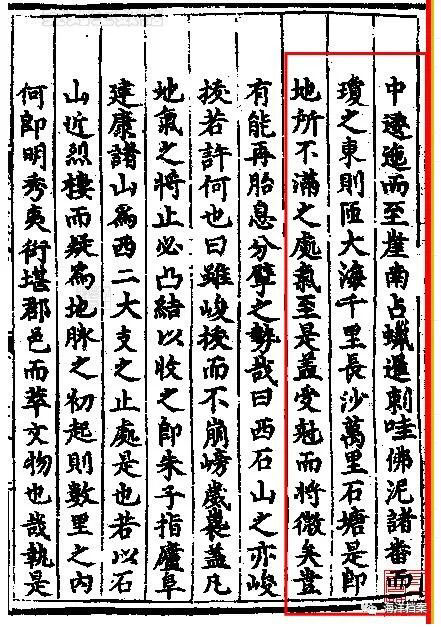 中邐迤而至崖南占蠟暹剌哇佛泥諸番而
瓊之東則大海千里長沙萬里石塘是即
地所不滿之處氣至是蓋受尅而將微矣豈
有能再胎息分擘之勢哉曰西石山之亦峻
拔若許何也曰雖峻拔而不崩蓋凡
地氣之將止必凸結以收之即朱子指廬阜
建康諸山爲西二大支之止處是也若以石
山近烈樓而疑爲地脉之初起則數里之內
何即明秀夷衍堪郡邑而萃文物也哉執是
海洋档案